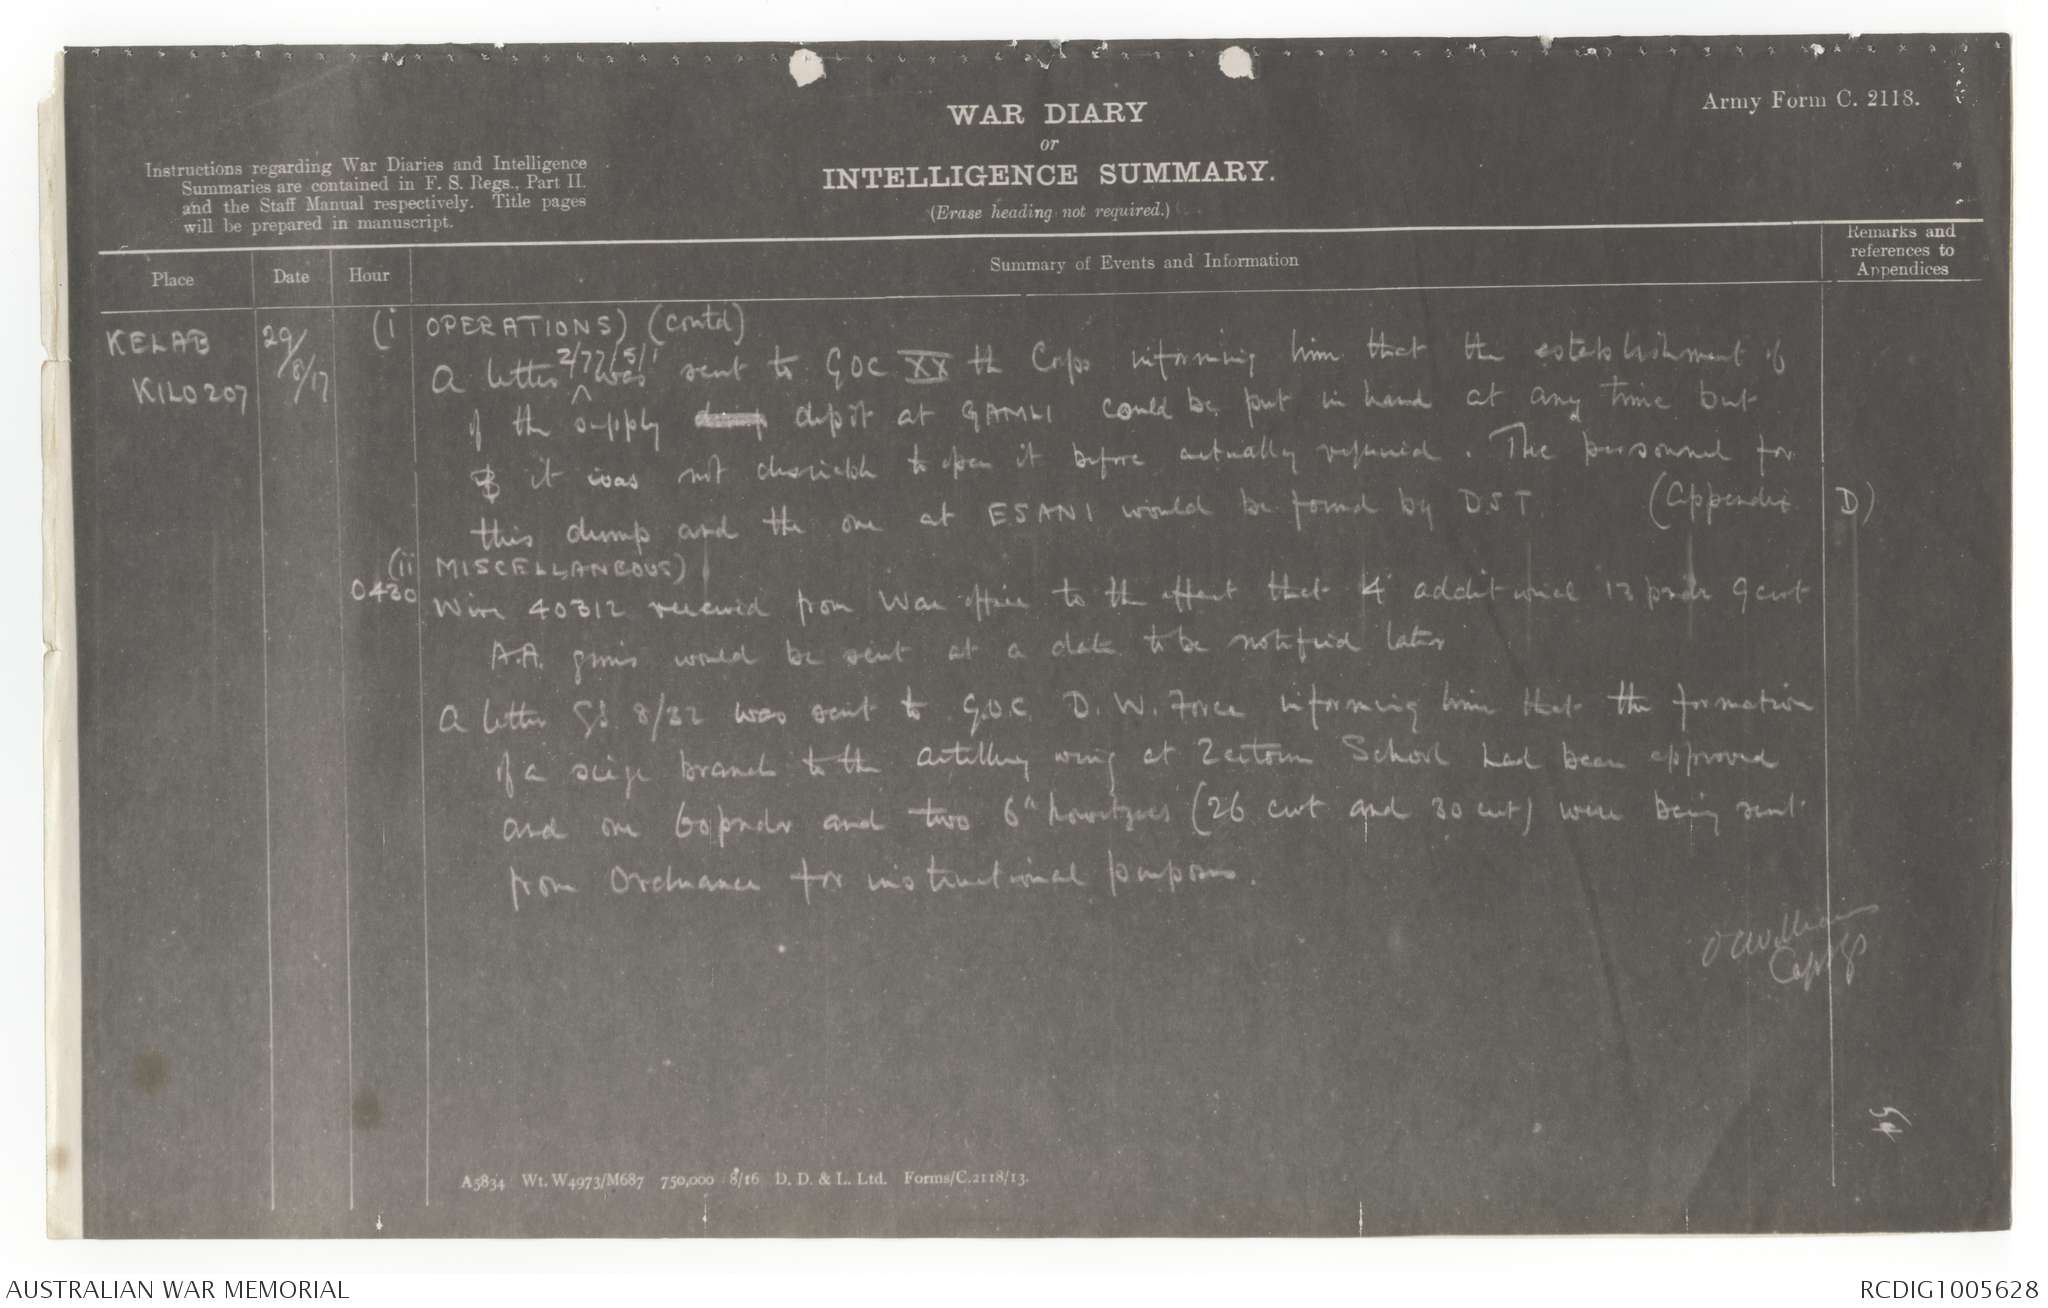 Army Form C. 2118.
WAR DIARY
or
INTELLIGENCE SUMMARY.
(Erase heading not required.)
Instructions regarding War Diaries and Intelligence
Summaries are contained in F. S. Regs., Part II.
and the Staff Manual respectively. Title pages
will be prepared in manuscript.
Place
Date
Hour
Summary of Events and Information
Remarks and
references to
Appendices
KELAB
KILO 207
29/
/8/17
(i OPERATIONS) (contd)
A letter 2/77/5/1 was sent to GOC XX th Corps informing him that the establishment of
of the supply dump depôt at GAMLI could be put in hand at any time but
it was not desirable to open it before actually required. The personnel for
this dump and the one at ESANI would be found by D.S.T. (Appendix D)
(ii MISCELLANEOUS)
0430 Wire 40312 received from War office to the effect that 4 additional 13 pndr 9 cwt
A.A. guns would be sent at a date to be notified later
A letter GS. 8/32 was sent to G.O.C. D. W. Force informing him that the formation
of a seige branch to the artillery wing at Zeitoun School had been approved
and one 60 pndr and two 6" howitzers (26 cwt and 30 cwt) were being sent
from Ordnance for instructional purposes.
Williams
Capt GS
54
A5834 Wt. W4973/M687 750,000 8/16 D. D. & L. Ltd. Forms/C.2118/13.
AUSTRALIAN WAR MEMORIAL
RCDIG1005628